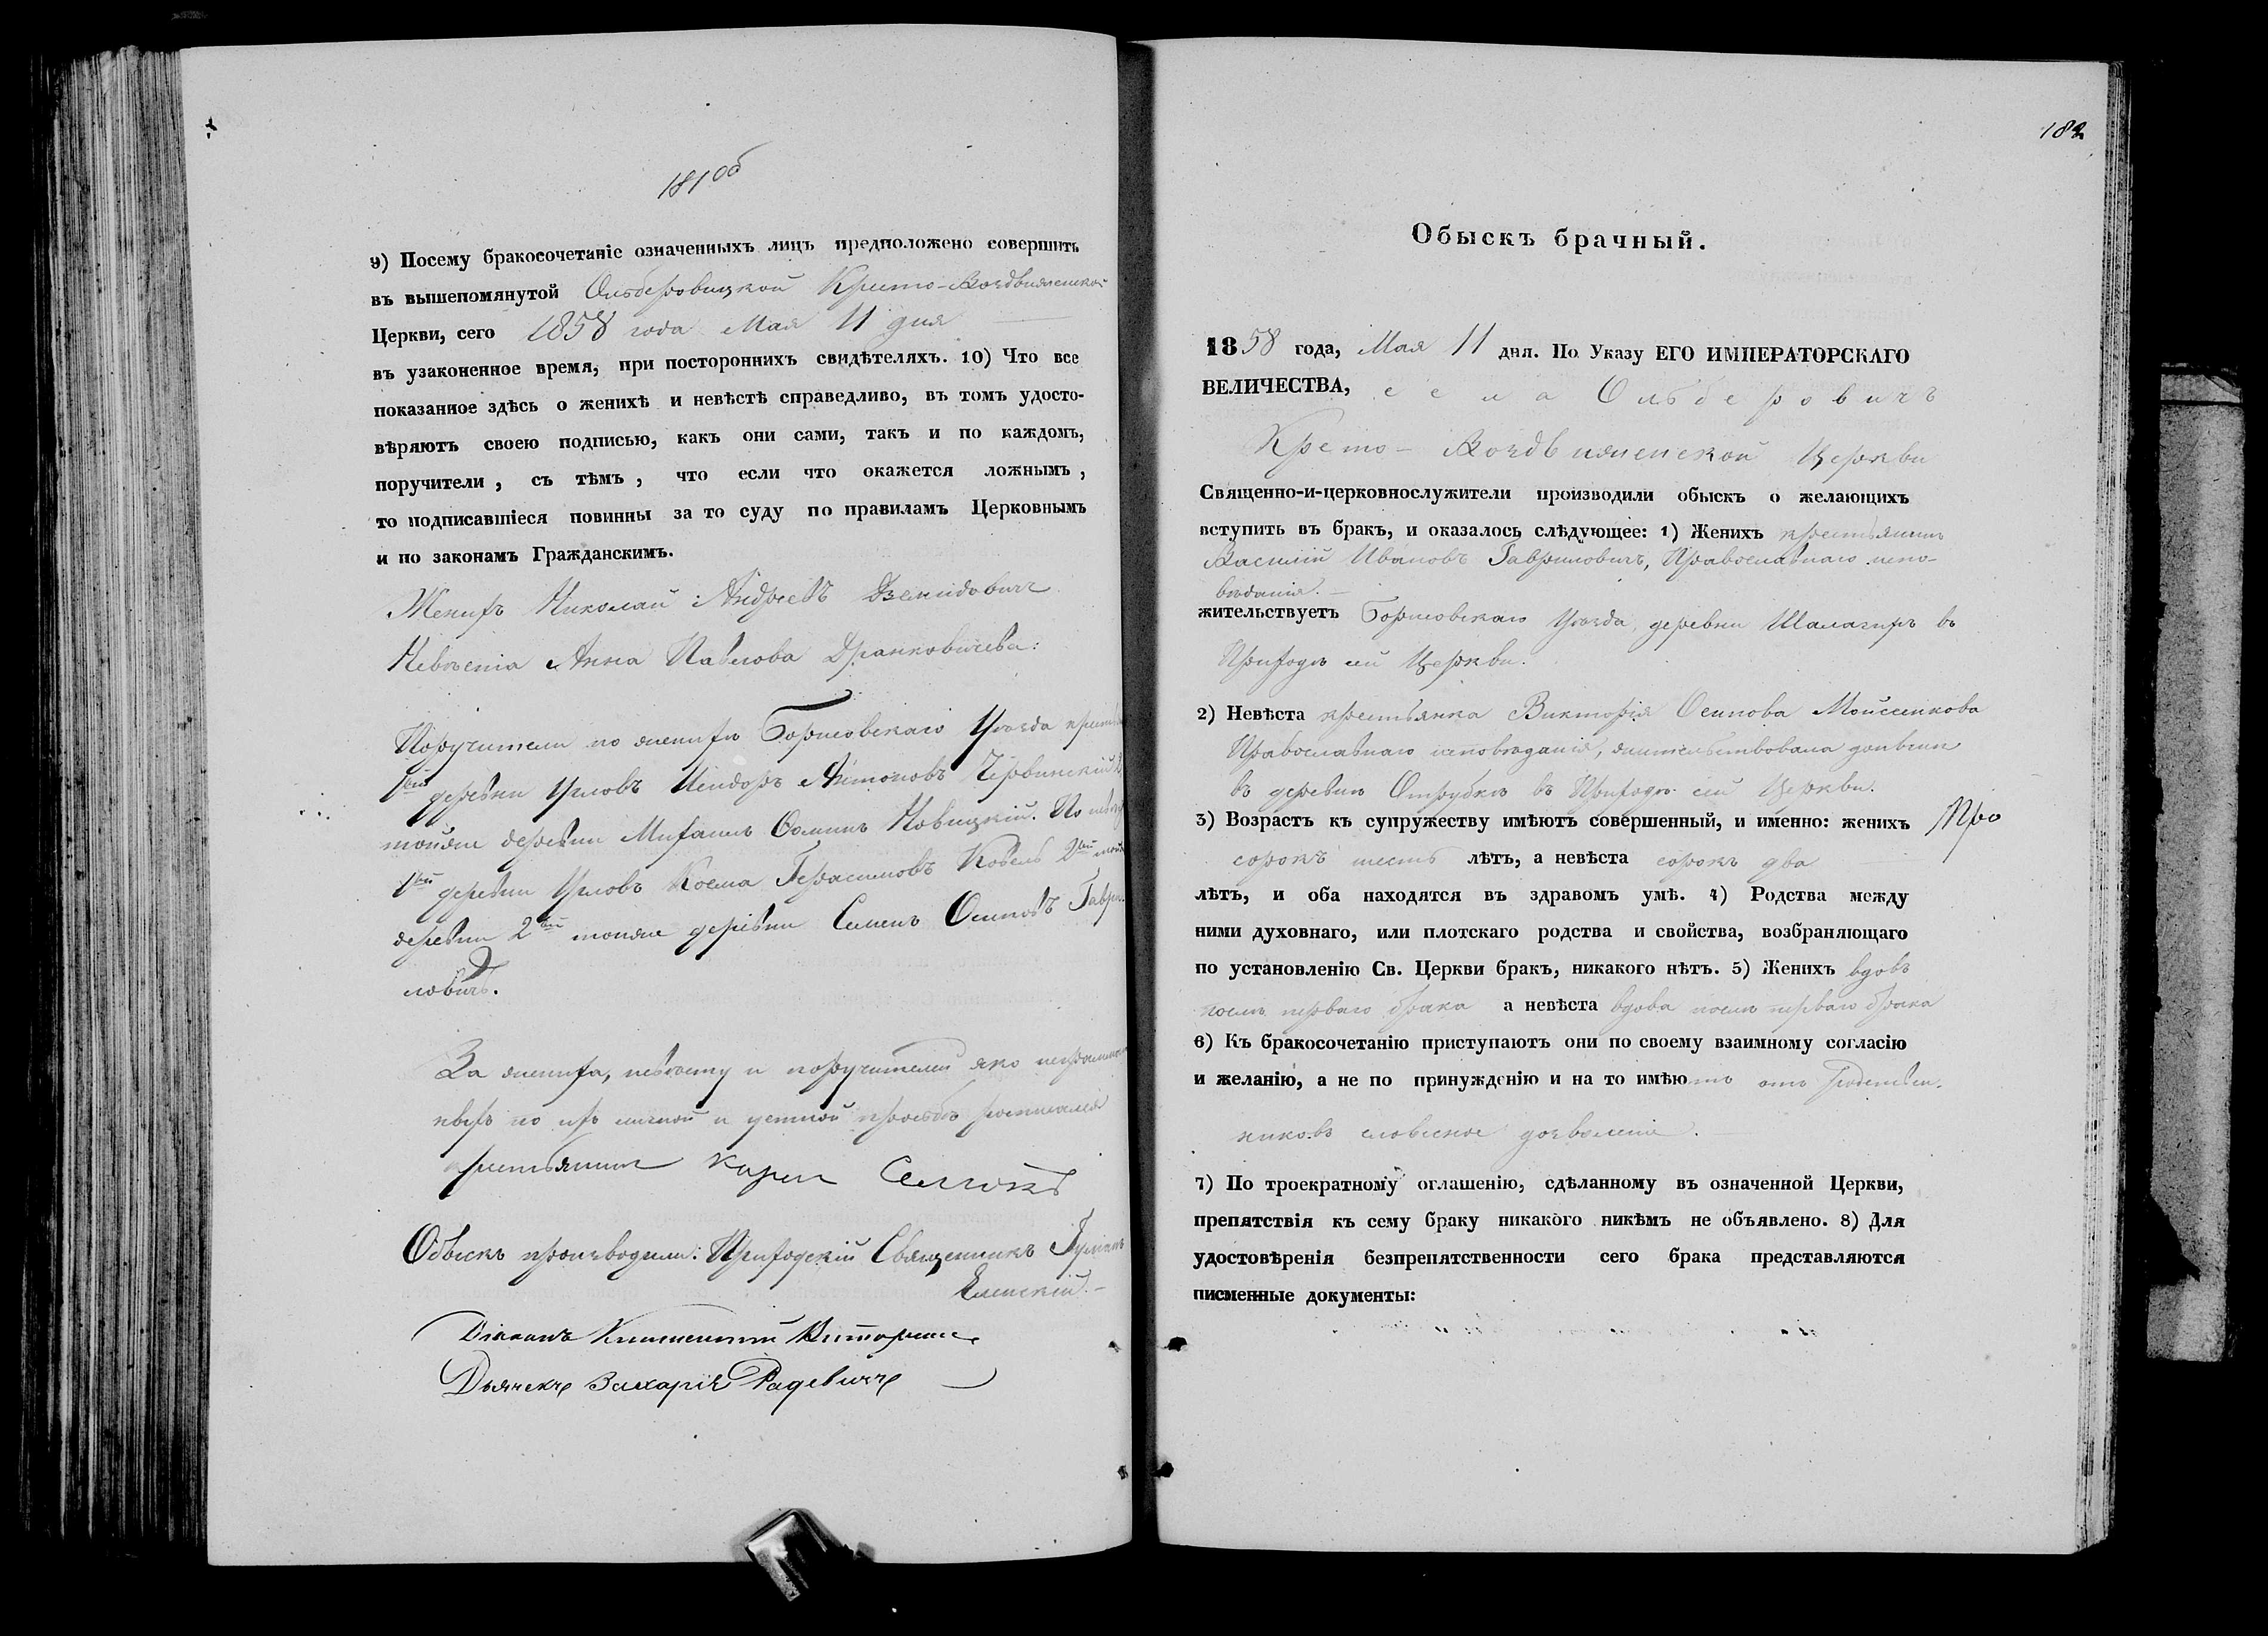 181 об
9) Посему бракосочетаніе означенныхъ лицъ предположено совершить
въ вышепомянутой Ольберовицкой Кресто-Воздвиженской
Церкви, сего 1858 года Мая 11 дня
въ узаконенное время, при постороннихъ свидѣтеляхъ. 10) Что все
показанное здѣсь о женихѣ и невѣстѣ справедливо, въ томъ удосто-
вѣряютъ своею подписью, какъ они сами, такъ и по каждомъ,
поручители, съ тѣмъ, что если что окажется ложнымъ,
то подписавшіеся повинны за то суду по правиламъ Церковнымъ
и по законамъ Гражданскимъ.
Женихъ Николай Андреевъ Демидовичъ
Невѣста Анна Павлова Дранковичева:
Поручители по женихѣ Борисовскаго Уѣзда
1ый деревни Антоновъ
тойже деревни Михаилъ Новицкій. По
1ый деревни Косма Герасимовъ Ковель 2ый
деревни 2ый тойже деревни Семенъ Осиповъ Гаври-
ловичъ.
За жениха, невѣсту и поручителей яко неграмот
ныхъ по ихъ личной и устной прозьбѣ росписался
крестьянинъ
Обыскъ производили: Приходскій Священникъ
Еленскій
Діаконъ
Дьячекъ Захарія Радевичъ
182
Обыскъ брачный.
1858 года, Мая 11 дня. По Указу ЕГО ИМПЕРАТОРСКАГО
ВЕЛИЧЕСТВА, села Ольберовичъ
Кресто-Воздвиженской Церкви
Священно-и-церковнослужители производили обыскъ о желающихъ
вступить въ бракъ, и оказалось слѣдующее: 1) Женихъ крестьянинъ
Василій Ивановъ Гавриловичъ, Православнаго испо-
вѣданія.
жительствуетъ Борисовскаго Уѣзда, деревни Шалагиръ въ
Приходѣ сей Церкви.
2) Невѣста крестьянка Викторія Осипова Моисеенкова
Православнаго исповѣданія, жительствовала донынѣ
въ деревнѣ Отрубкѣ въ Приходѣ сей Церкви.
3) Возрастъ къ супружеству имѣютъ совершенный, и именно: женихъ
сорокъ шесть лѣтъ, а невѣста сорокъ два
лѣтъ, и оба находятся въ здравомъ умѣ. 4) Родства между
ними духовнаго, или плотскаго родства и свойства, возбраняющаго
по установленію Св. Церкви бракъ, никакого нѣтъ. 5) Женихъ вдовъ
послѣ перваго брака а невѣста вдова послѣ перваго брака
6) Къ бракосочетанію приступаютъ они по своему взаимному согласію
и желанію, а не по принужденію и на то имѣютъ отъ родствен-
никовъ словесное дозволеніе.
7) По троекратному оглашенію, сдѣланному въ означенной Церкви,
препятствія къ сему браку никакого никѣмъ не объявлено. 8) Для
удостовѣренія безпрепятственности сего брака представляются
писменные документы: